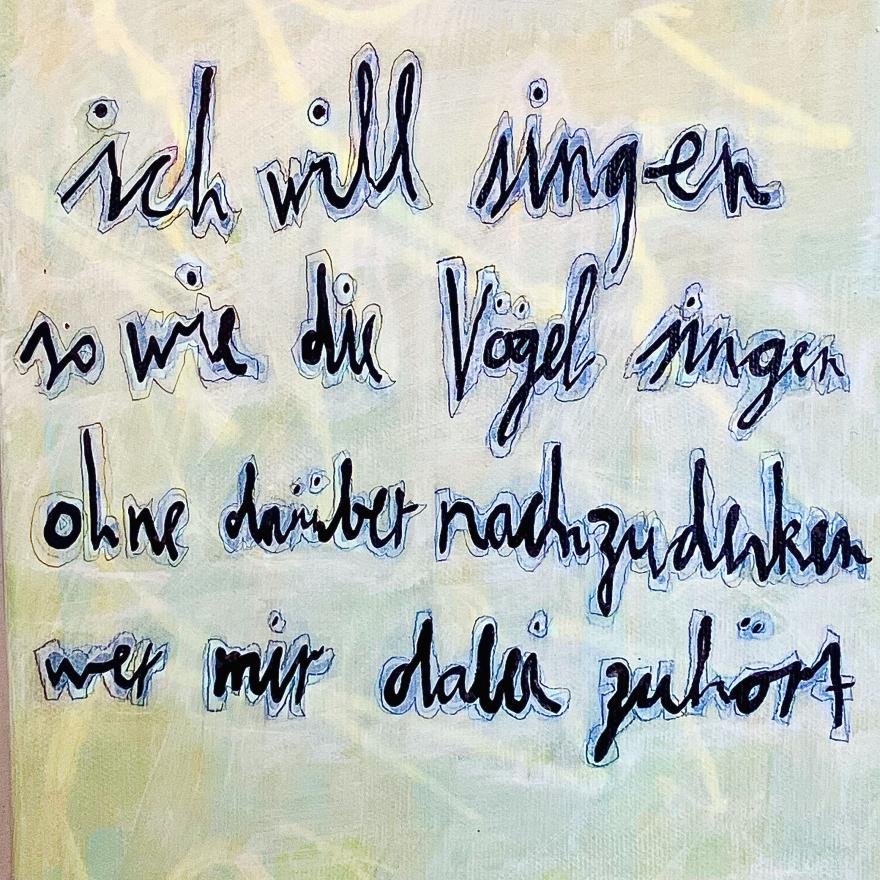 ich will singen
so wie die Vögel singen
ohne darüber nachzudenken
wer mir dabei zuhört